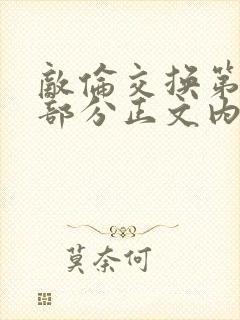 敵倫交换第
部分正文内
莫奈何